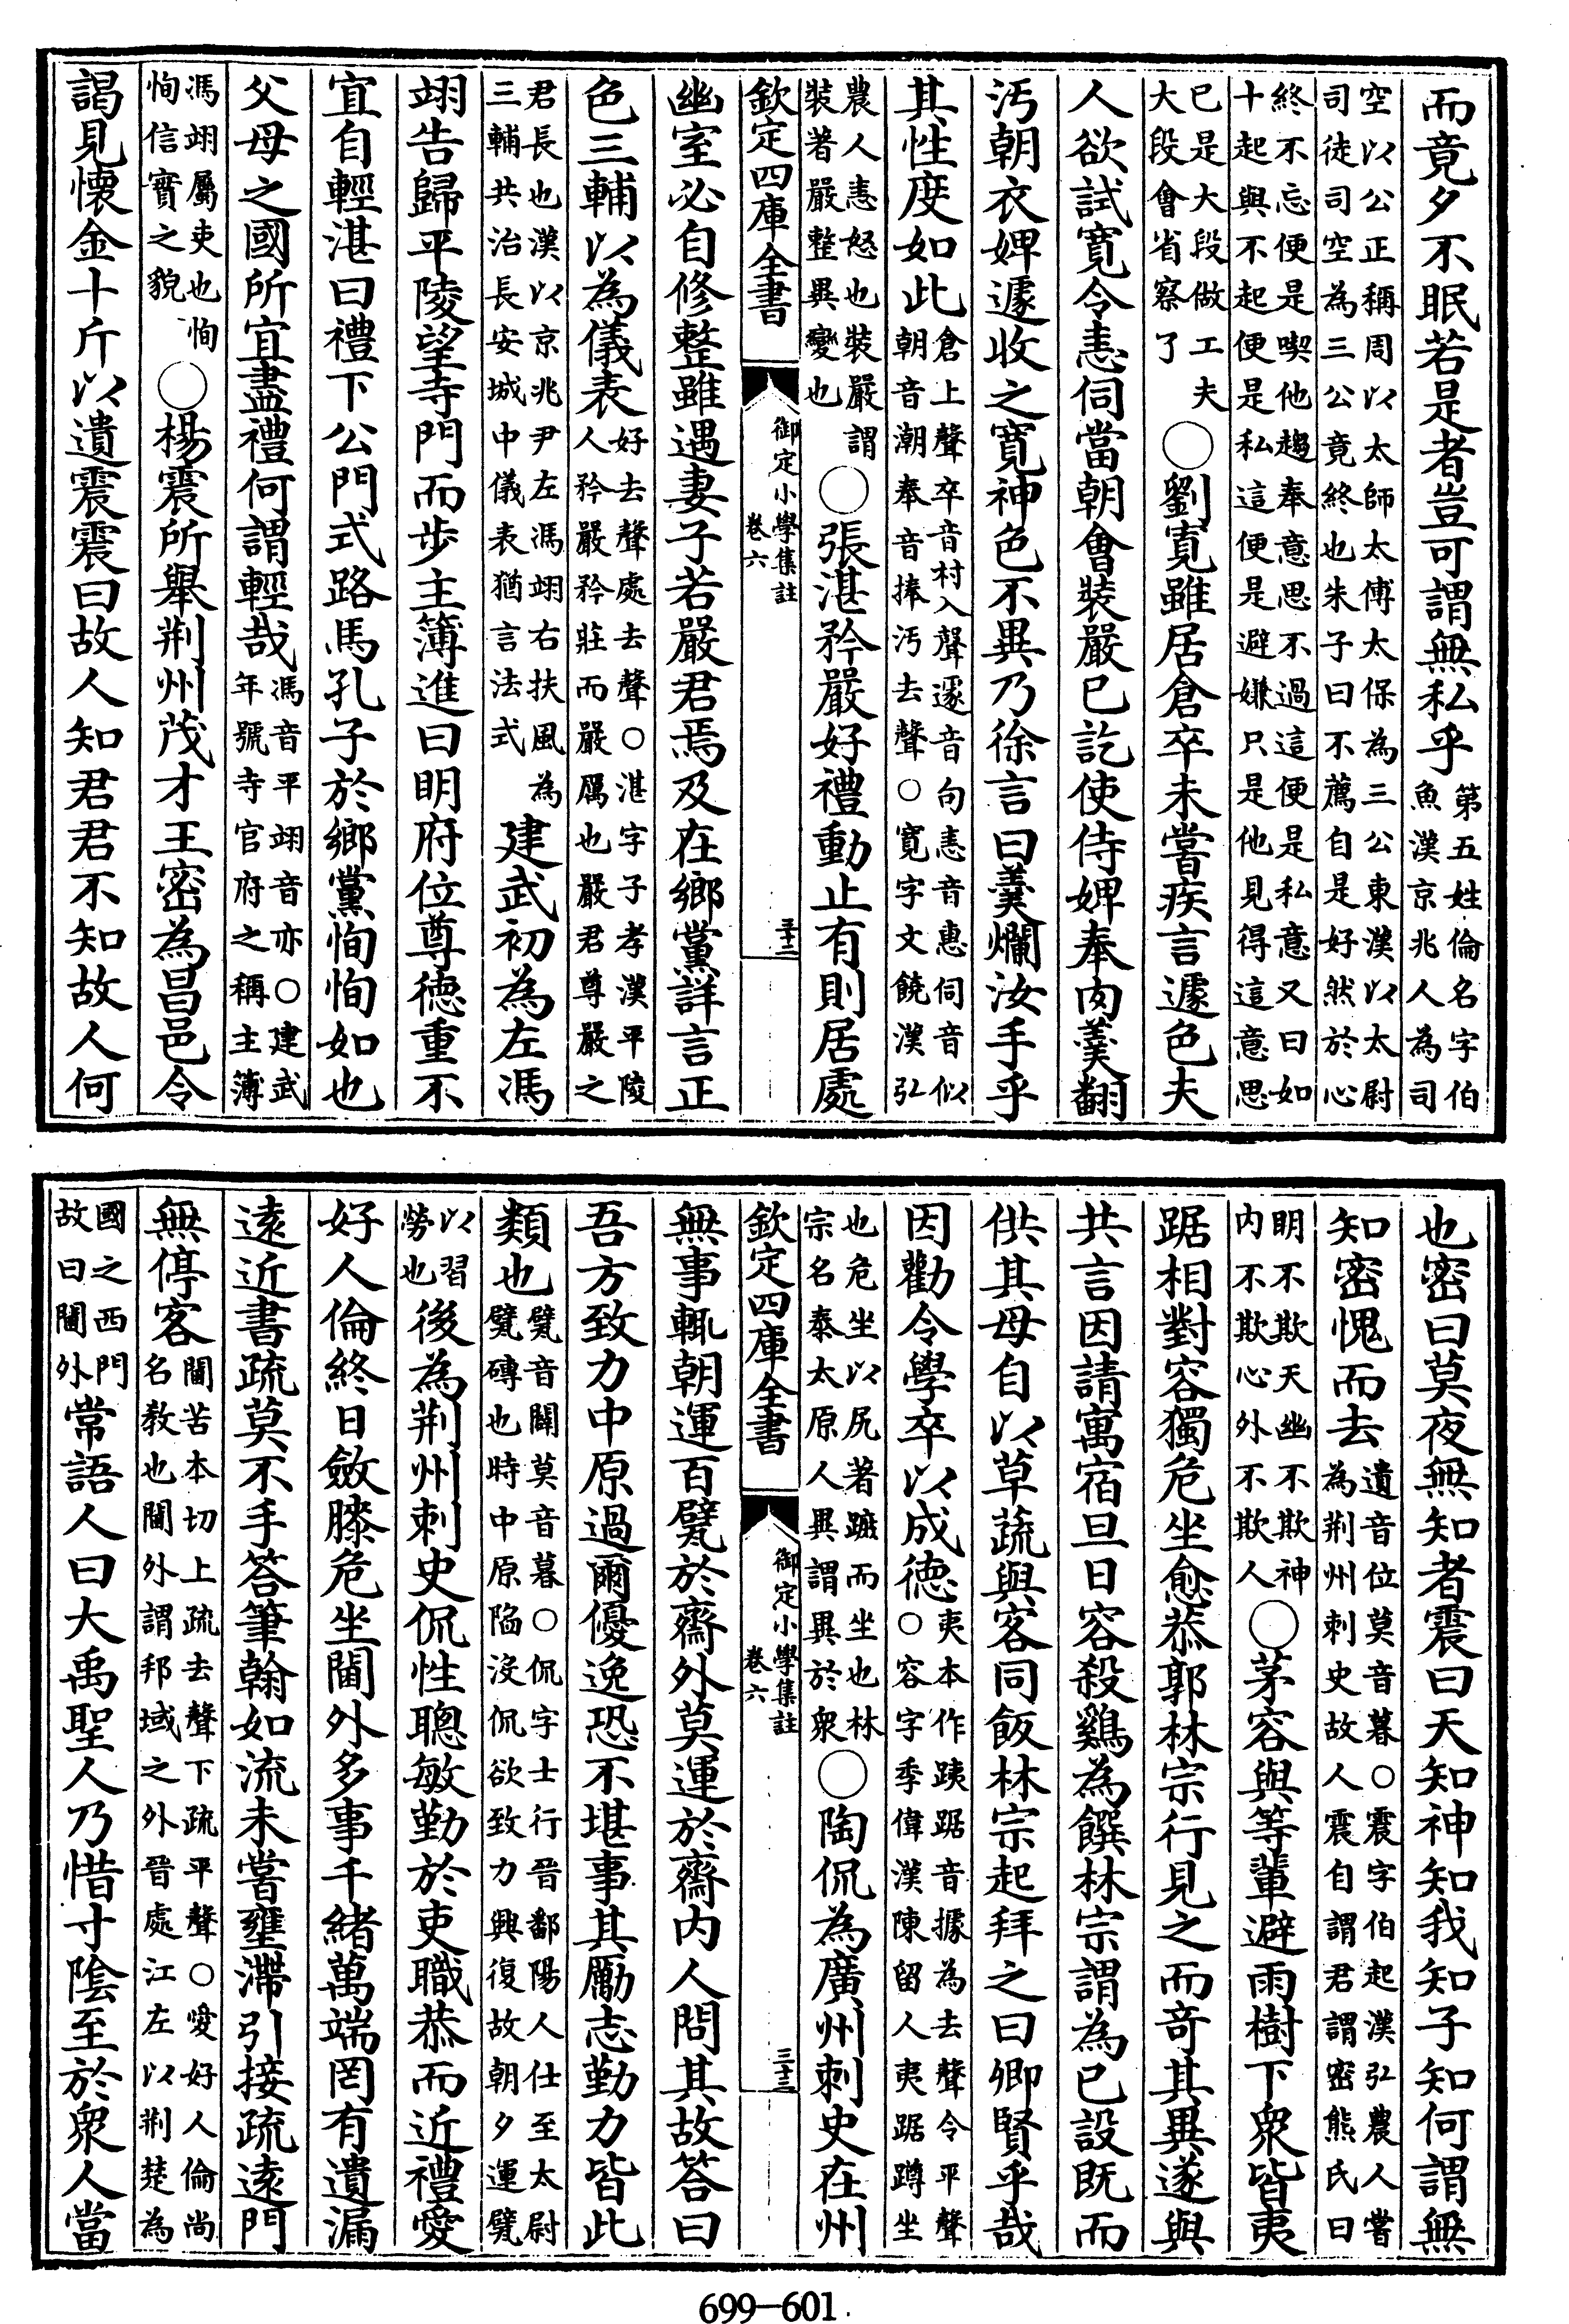 而竟夕不眠若是者豈可謂無私乎第五姓倫名字伯
魚漢京兆人為司
空以公正稱周以太師太傅太保為三公東漢以太尉
司徒司空為三公竟終也朱子曰不薦自是好然於心
終不忘便是喫他趨奉意思不過這便是私意又曰如
十起與不起便是私這便是避嫌只是他見得這意思
已是大段做工夫
大段會省察了
○劉寛雖居倉卒未嘗疾言遽色夫
人欲試寛令恚伺當朝會裝嚴已訖使侍婢奉肉羹翻
汚朝衣婢遽收之寛神色不異乃徐言曰羹爛汝手乎
其性度如此倉上聲卒音村入聲遽音句恚音惠伺音似
朝音潮奉音捧汚去聲○寛字文饒漢弘
農人恚怒也裝嚴謂
裝著嚴整異變也
○張湛矜嚴好禮動止有則居處
欽定四庫全書
御定小學集註
卷六
三十二
幽室必自修整雖遇妻子若嚴君焉及在鄉黨詳言正
色三輔以為儀表好去聲處去聲○湛字子孝漢平陵
人矜嚴矜莊而嚴厲也嚴君尊嚴之
君長也漢以京兆尹左馮翊右扶風為
三輔共治長安城中儀表猶言法式
建武初為左馮
翊告歸平陵望寺門而步主簿進曰明府位尊德重不
宜自輕湛曰禮下公門式路馬孔子於鄉黨恂恂如也
父母之國所宜盡禮何謂輕哉馮音平翊音亦○建武
年號寺官府之稱主簿
馮翊屬吏也恂
恂信實之貌
○楊震所舉荆州茂才王密為昌邑令
謁見懷金十斤以遺震震曰故人知君君不知故人何
也密曰莫夜無知者震曰天知神知我知子知何謂無
知密愧而去遺音位莫音暮○震字伯起漢弘農人嘗
為荆州刺史故人震自謂君謂密熊氏曰
明不欺天幽不欺神
内不欺心外不欺人
○茅容與等輩避雨樹下衆皆夷
踞相對容獨危坐愈恭郭林宗行見之而奇其異遂與
共言因請寓宿旦日容殺鷄為饌林宗謂為已設既而
供其母自以草蔬與客同飯林宗起拜之曰卿賢乎哉
因勸令學卒以成德夷本作跠踞音據為去聲令平聲
○容字季偉漢陳留人夷踞蹲坐
也危坐以尻著蹠而坐也林
宗名泰太原人異謂異於衆
○陶侃為廣州刺史在州
欽定四庫全書
御定小學集註
卷六
三十三
無事輒朝運百甓於齋外莫運於齋内人問其故答曰
吾方致力中原過爾優逸恐不堪事其勵志勤力皆此
類也甓音闢莫音暮○侃字士行晉鄱陽人仕至太尉
甓磚也時中原陷没侃欲致力興復故朝夕運甓
以習
勞也
後為荆州刺史侃性聰敏勤於吏職恭而近禮愛
好人倫終日斂膝危坐閫外多事千緒萬端罔有遺漏
遠近書疏莫不手答筆翰如流未嘗壅滯引接疏遠門
無停客閫苦本切上疏去聲下疏平聲○愛好人倫尚
名教也閫外謂邦域之外晉處江左以荆楚為
國之西門
故曰閫外
常語人曰大禹聖人乃惜寸陰至於衆人當
699—601